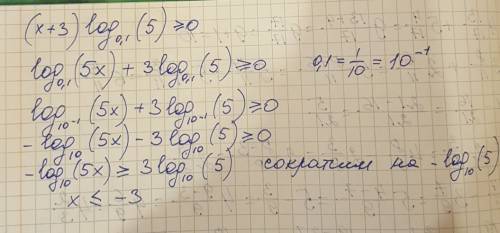 (x+3) log₀,₁(5) ≥ 0
log₀,₁(5x) + 3log₀,₁(5) ≥ 0 0,1 = 1/10 = 10⁻¹
log₁₀₋₁(5x) + 3log₁₀₋₁(5) ≥ 0
-log₁₀(5x) - 3log₁₀(5) ≥ 0
-log₁₀(5x) ≥ 3log₁₀(5) сократим на -log₁₀(5)
x ≤ -3